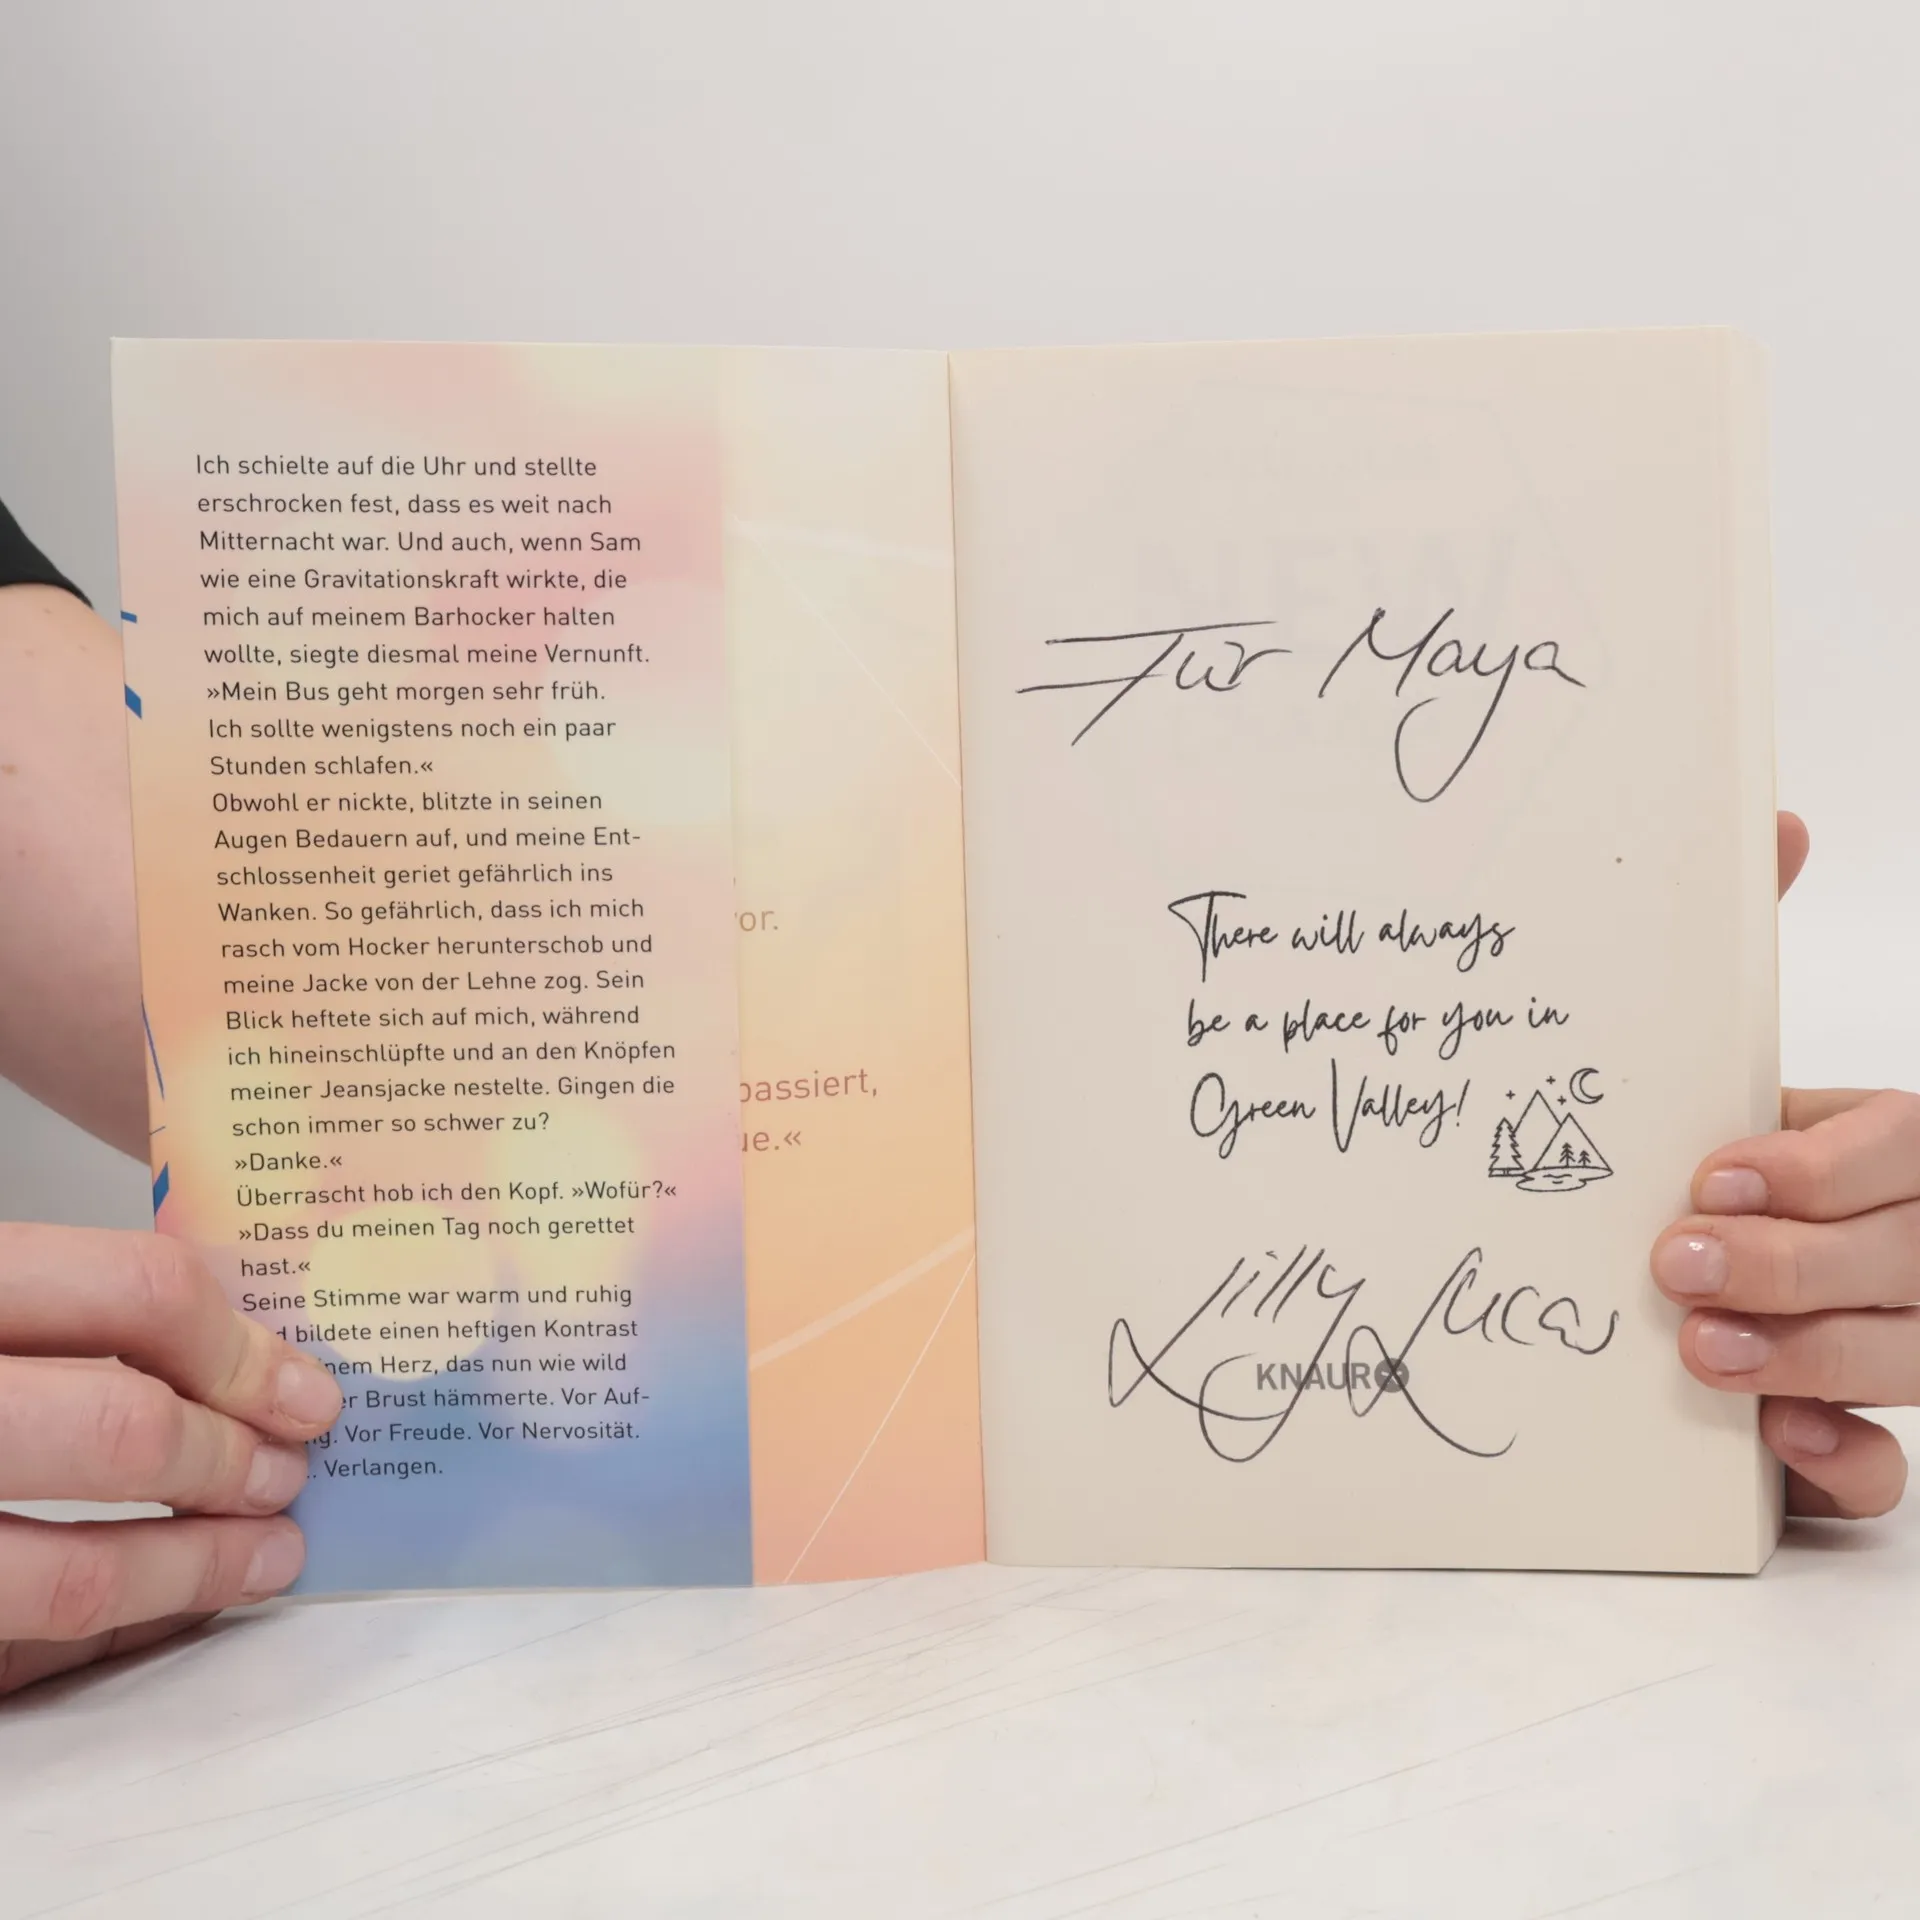 Ich schielte auf die Uhr und stellte
erschrocken fest, dass es weit nach
Mitternacht war. Und auch, wenn Sam
wie eine Gravitationskraft wirkte, die
mich auf meinem Barhocker halten
wollte, siegte diesmal meine Vernunft.
»Mein Bus geht morgen sehr früh.
Ich sollte wenigstens noch ein paar
Stunden schlafen.«
Obwohl er nickte, blitzte in seinen
Augen Bedauern auf, und meine Ent-
schlossenheit geriet gefährlich ins
Wanken. So gefährlich, dass ich mich
rasch vom Hocker herunterschob und
meine Jacke von der Lehne zog. Sein
Blick heftete sich auf mich, während
ich hineinschlüpfte und an den Knöpfen
meiner Jeansjacke nestelte. Gingen die
schon immer so schwer zu?
»Danke.«
Überrascht hob ich den Kopf. »Wofür?«
»Dass du meinen Tag noch gerettet
hast.«
Seine Stimme war warm und ruhig
bildete einen heftigen Kontrast
Herz, das nun wie wild
Brust hämmerte. Vor Auf-
Vor Freude. Vor Nervosität.
Verlangen.
passiert,
Für Maya
There will always
be a place for you in
Green Valley!
Lilly Lucas
KNAUR